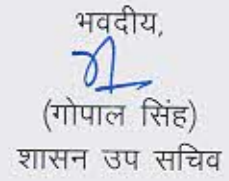 भवदीय,
(गोपाल सिंह)
शासन उप सचिव